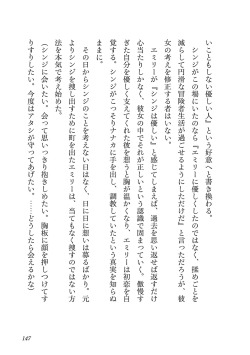 いこともしない優しい人」という好意へと書き換わる。
　シンジがこの場にいたのなら「エミリーに優しくしたのではなく、揉めごとを
減らして円滑な冒険者生活が過ごせるようにしただけだ」と言っただろうが、彼
女の考えを修正する者はしない。
　エミリーが「シンジは優しい人」と感じてしまえば、過去を思い返せば返すだけ
心当たりしかなく、彼女の中でそれが正しいという認識で固まっていく。傲慢す
ぎた自分を優しく支えてくれた彼を想うと胸が温かくなり、エミリーは初恋を自
覚する。シンジがこっそりナナカに手を出し、調教していたという真実を知らぬ
ままに。
　その日からシンジのことを考えない日はなく、日に日に想いは募るばかり。元
よりシンジを捜し出すために町を出たエミリーは、当てもなく捜すのではない方
法を本気で考え始めた。
（シンジに会いたい。会って思いっきり抱きしめたい。胸板に顔を押しつけてす
りすりしたい。今度はアタシが守ってあげたい。……どうしたら会えるかな）
147